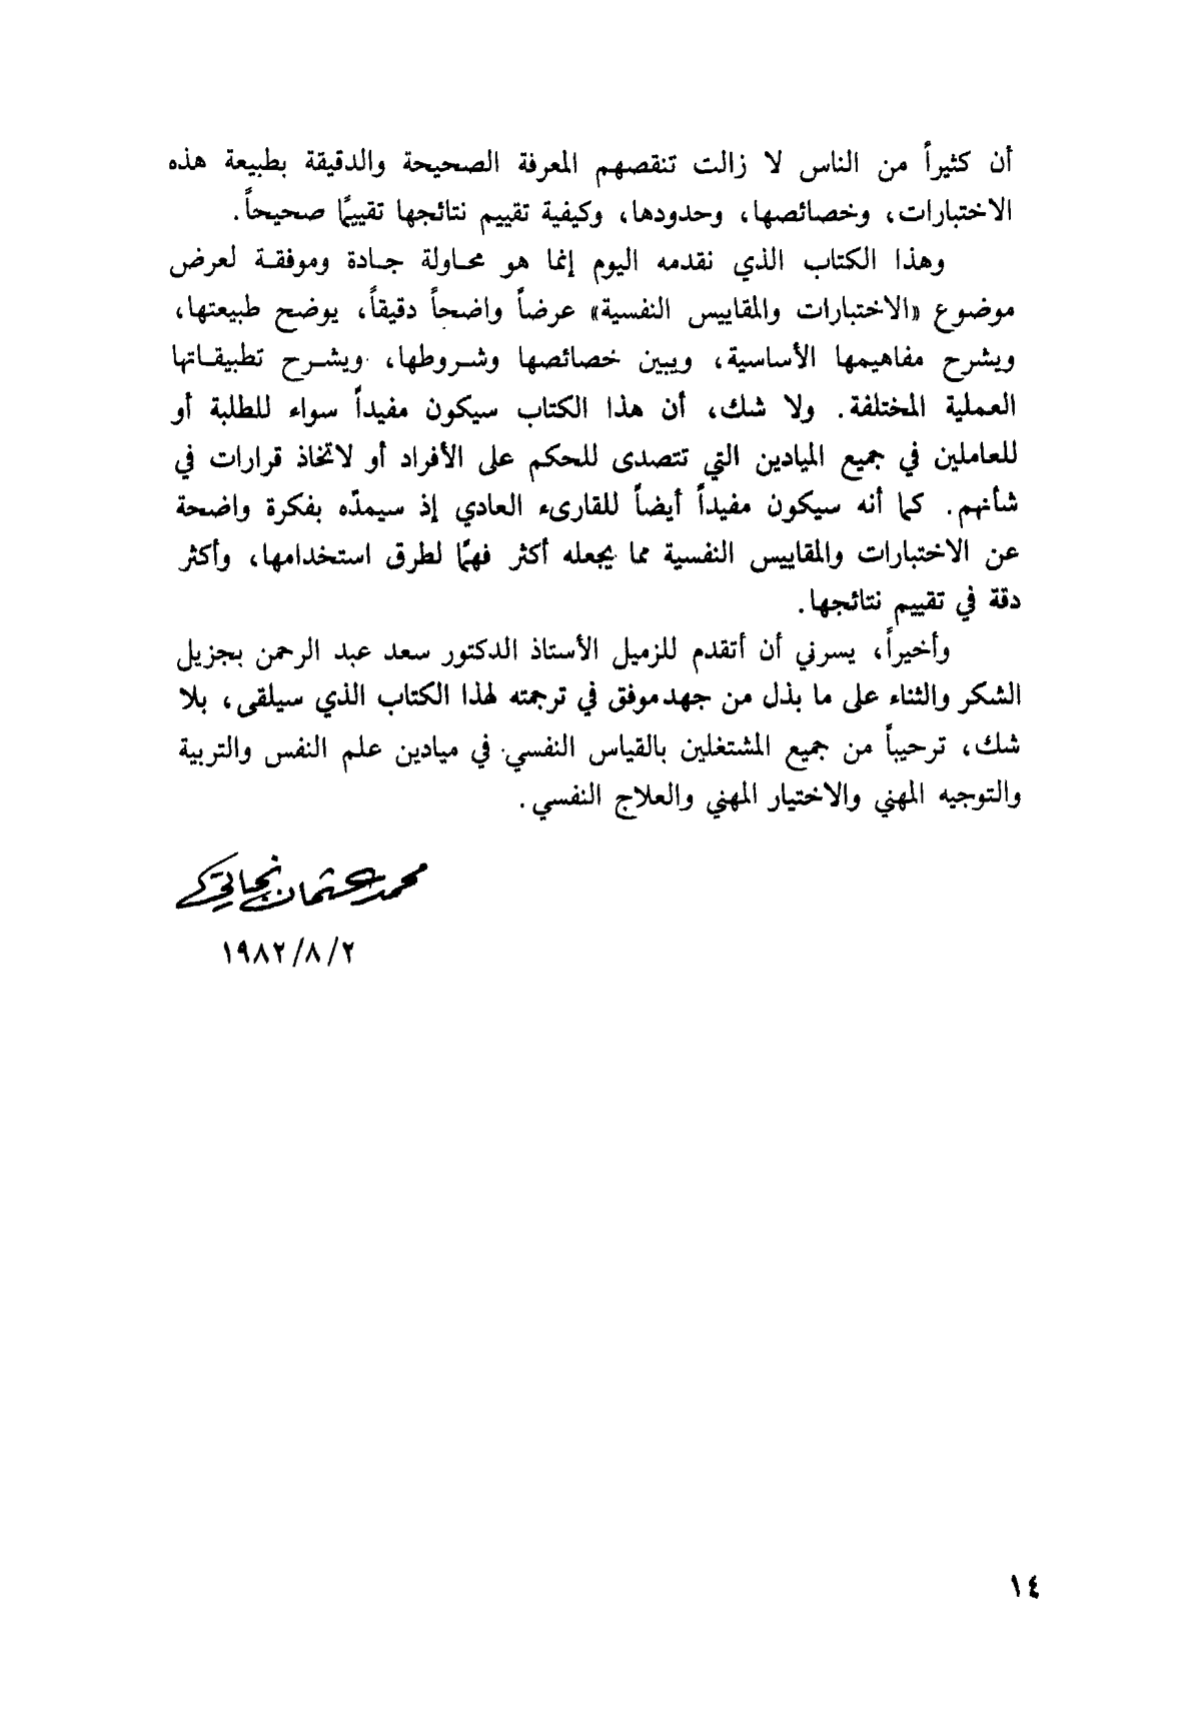 أن كثيراً من الناس لا زالت تنقصهم المعرفة الصحيحة والدقيقة بطبيعة هذه
الاختبارات، وخصائصها، وحدودها، وكيفية تقييم نتائجها تقييمًا صحيحاً.
وهذا الكتاب الذي نقدمه اليوم إنما هو محاولة جادة وموفقة لعرض
موضوع «الاختبارات والمقاييس النفسية» عرضاً واضحاً دقيقاً، يوضح طبيعتها،
ويشرح مفاهيمها الأساسية، ويبين خصائصها وشروطها، ويشرح تطبيقاتها
العملية المختلفة. ولا شك، أن هذا الكتاب سيكون مفيداً سواء للطلبة أو
للعاملين في جميع الميادين التي تتصدى للحكم على الأفراد أو لاتخاذ قرارات في
شأنهم. كما أنه سيكون مفيداً أيضاً للقارىء العادي إذ سيمدّه بفكرة واضحة
عن الاختبارات والمقاييس النفسية مما يجعله أكثر فهمًا لطرق استخدامها، وأكثر
دقة في تقييم نتائجها.
وأخيراً، يسرني أن أتقدم للزميل الأستاذ الدكتور سعد عبد الرحمن بجزيل
الشكر والثناء على ما بذل من جهد موفق في ترجمته لهذا الكتاب الذي سيلقى، بلا
شك، ترحيباً من جميع المشتغلين بالقياس النفسي في ميادين علم النفس والتربية
والتوجيه المهني والاختيار المهني والعلاج النفسي.
محمد عثمان نجاتي
١٩٨٢/٨/٢
١٤